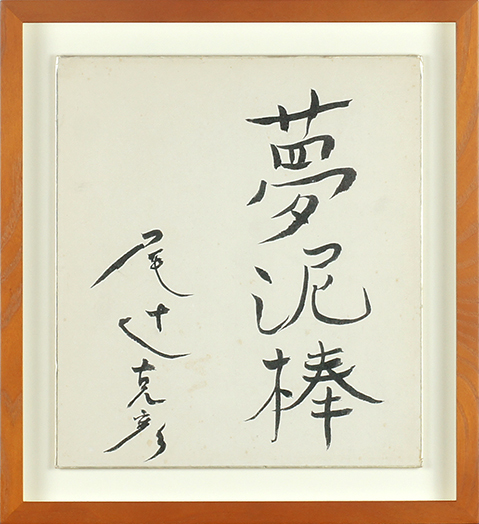 夢泥棒
尾辻克彦